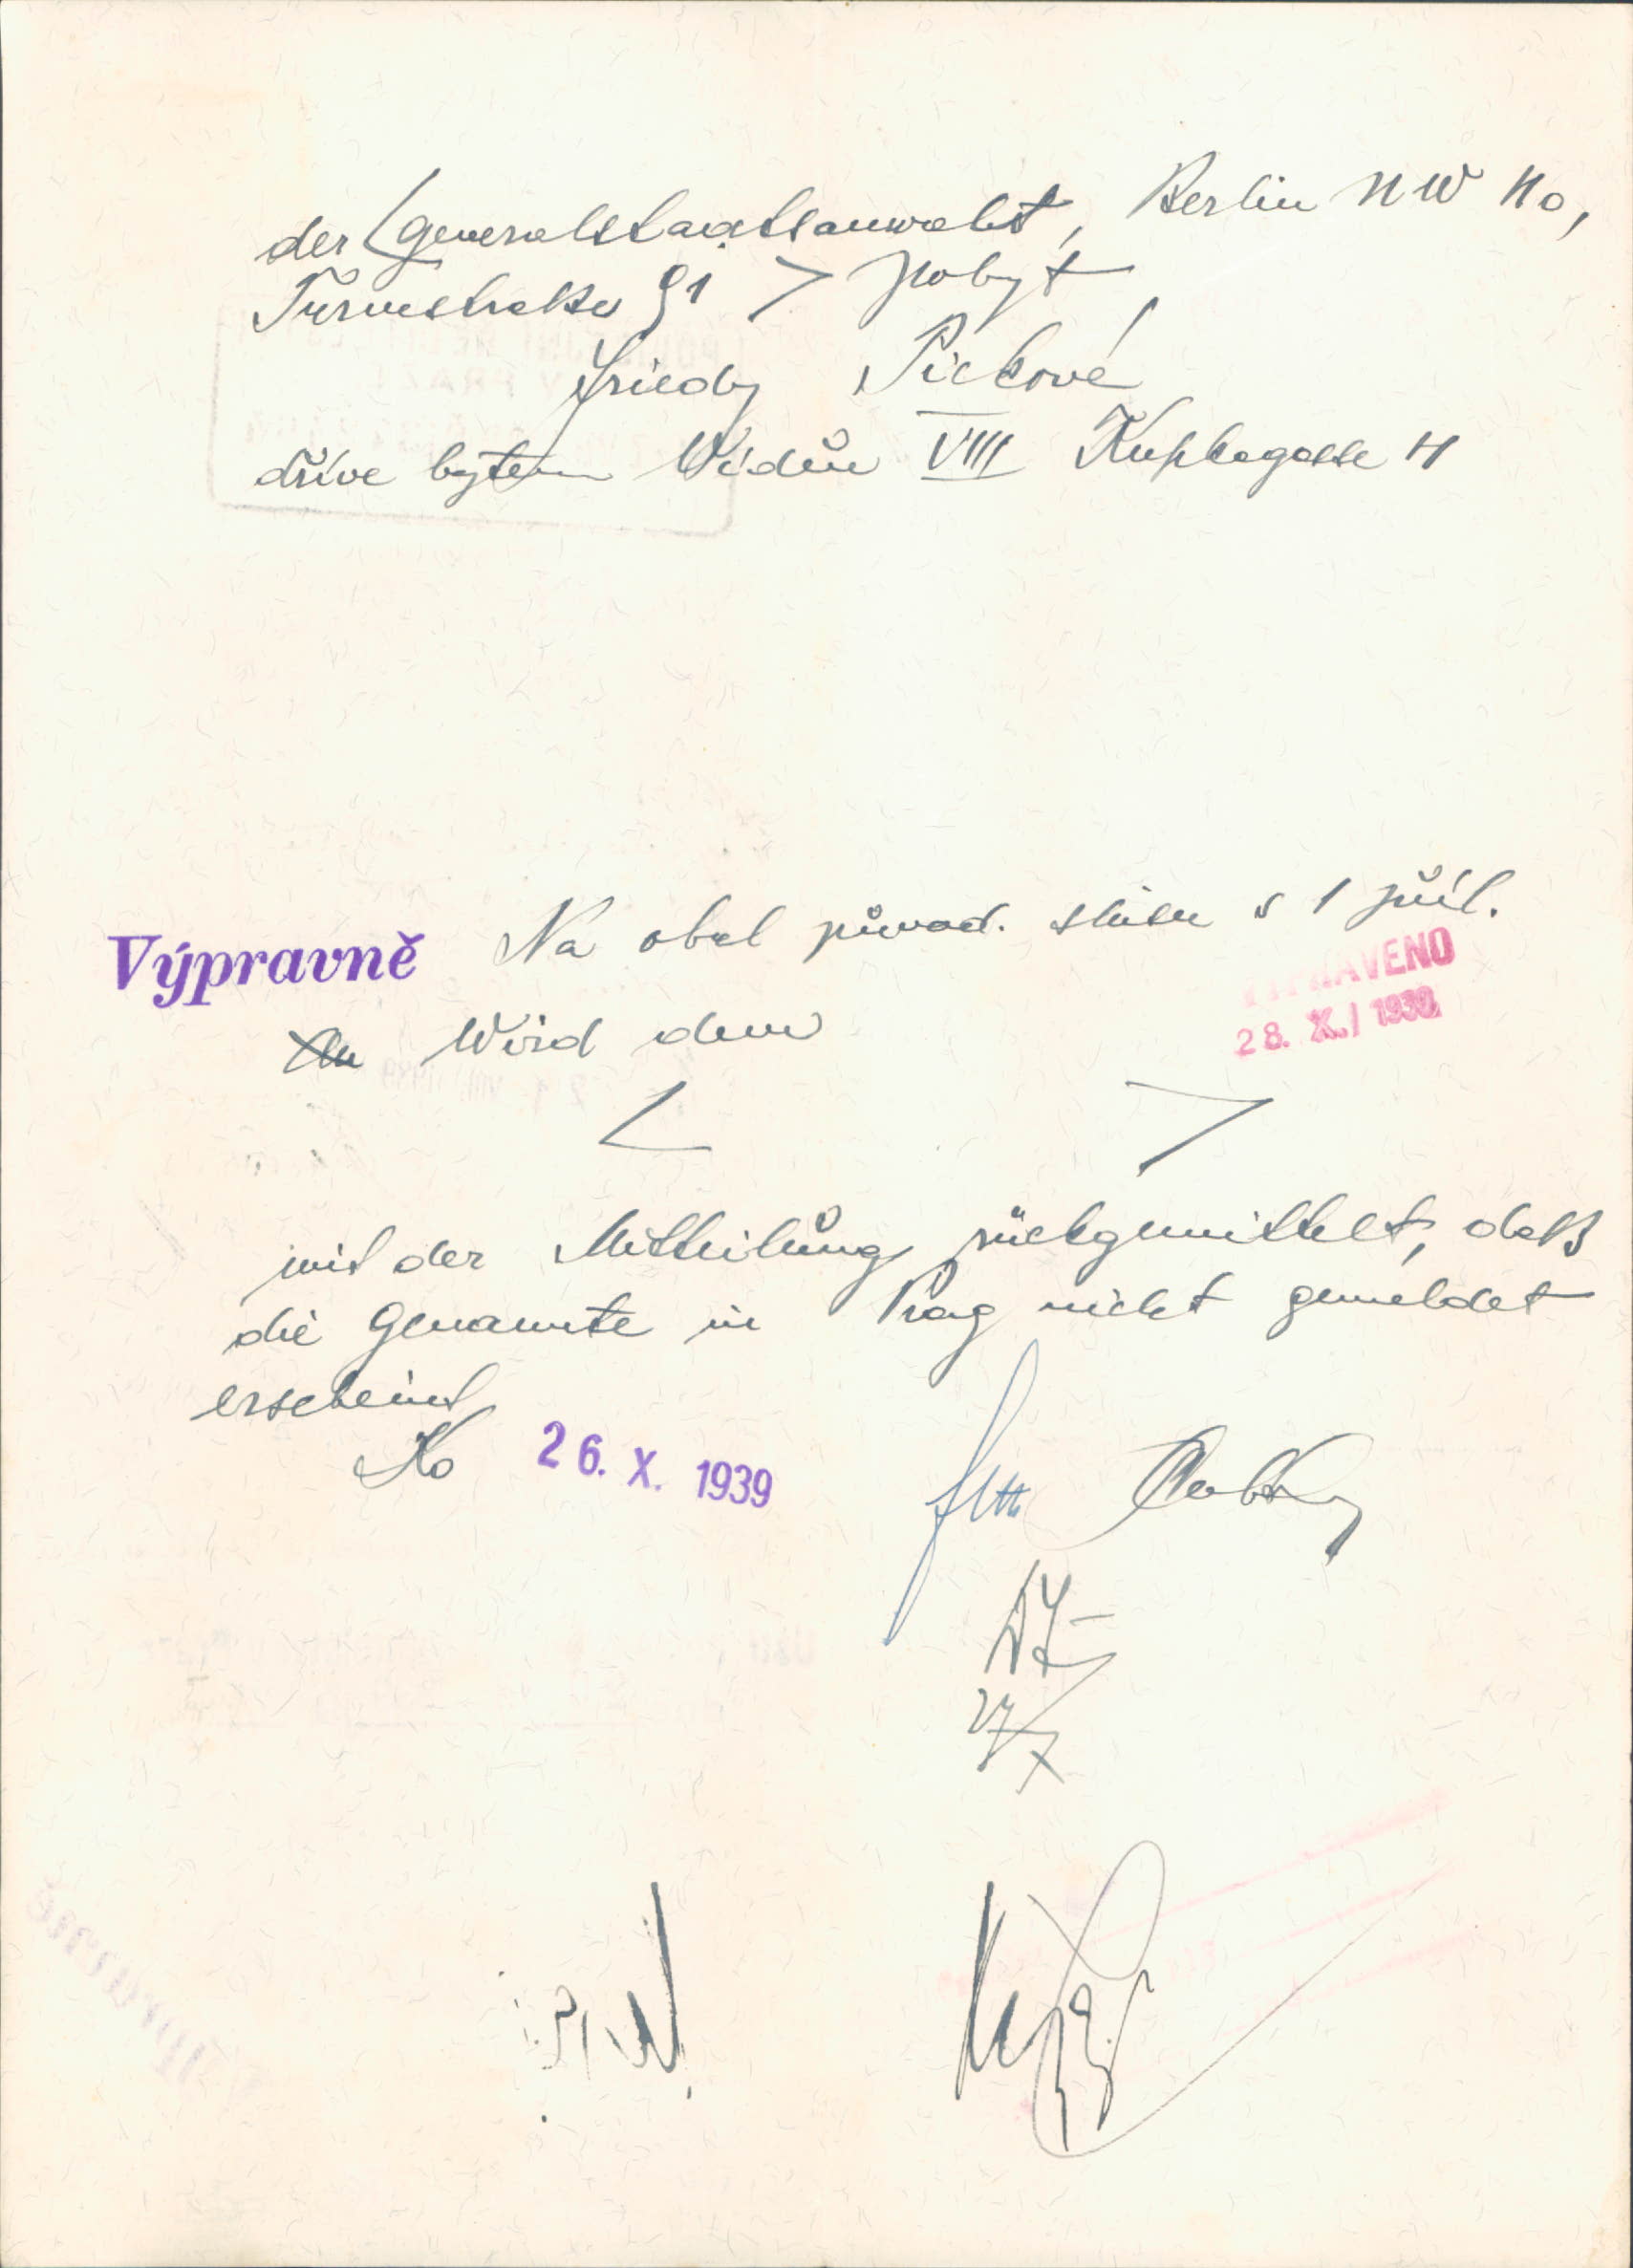 der <Generalstaatsanwalt, Berlin NW 40,
Turmstraße 91 > pobyt
Friedy Pickové
dříve bytem Vídeň VIII
Výpravně Na obal původ. s 1 příl.
VYPRAVENO
28. X. 1939
An Wird dem
< >
mit der Mitteilung rückgemittelt, daß
die Genannte in Prag nicht gemeldet
erscheint
Ko 26. X. 1939
27/X